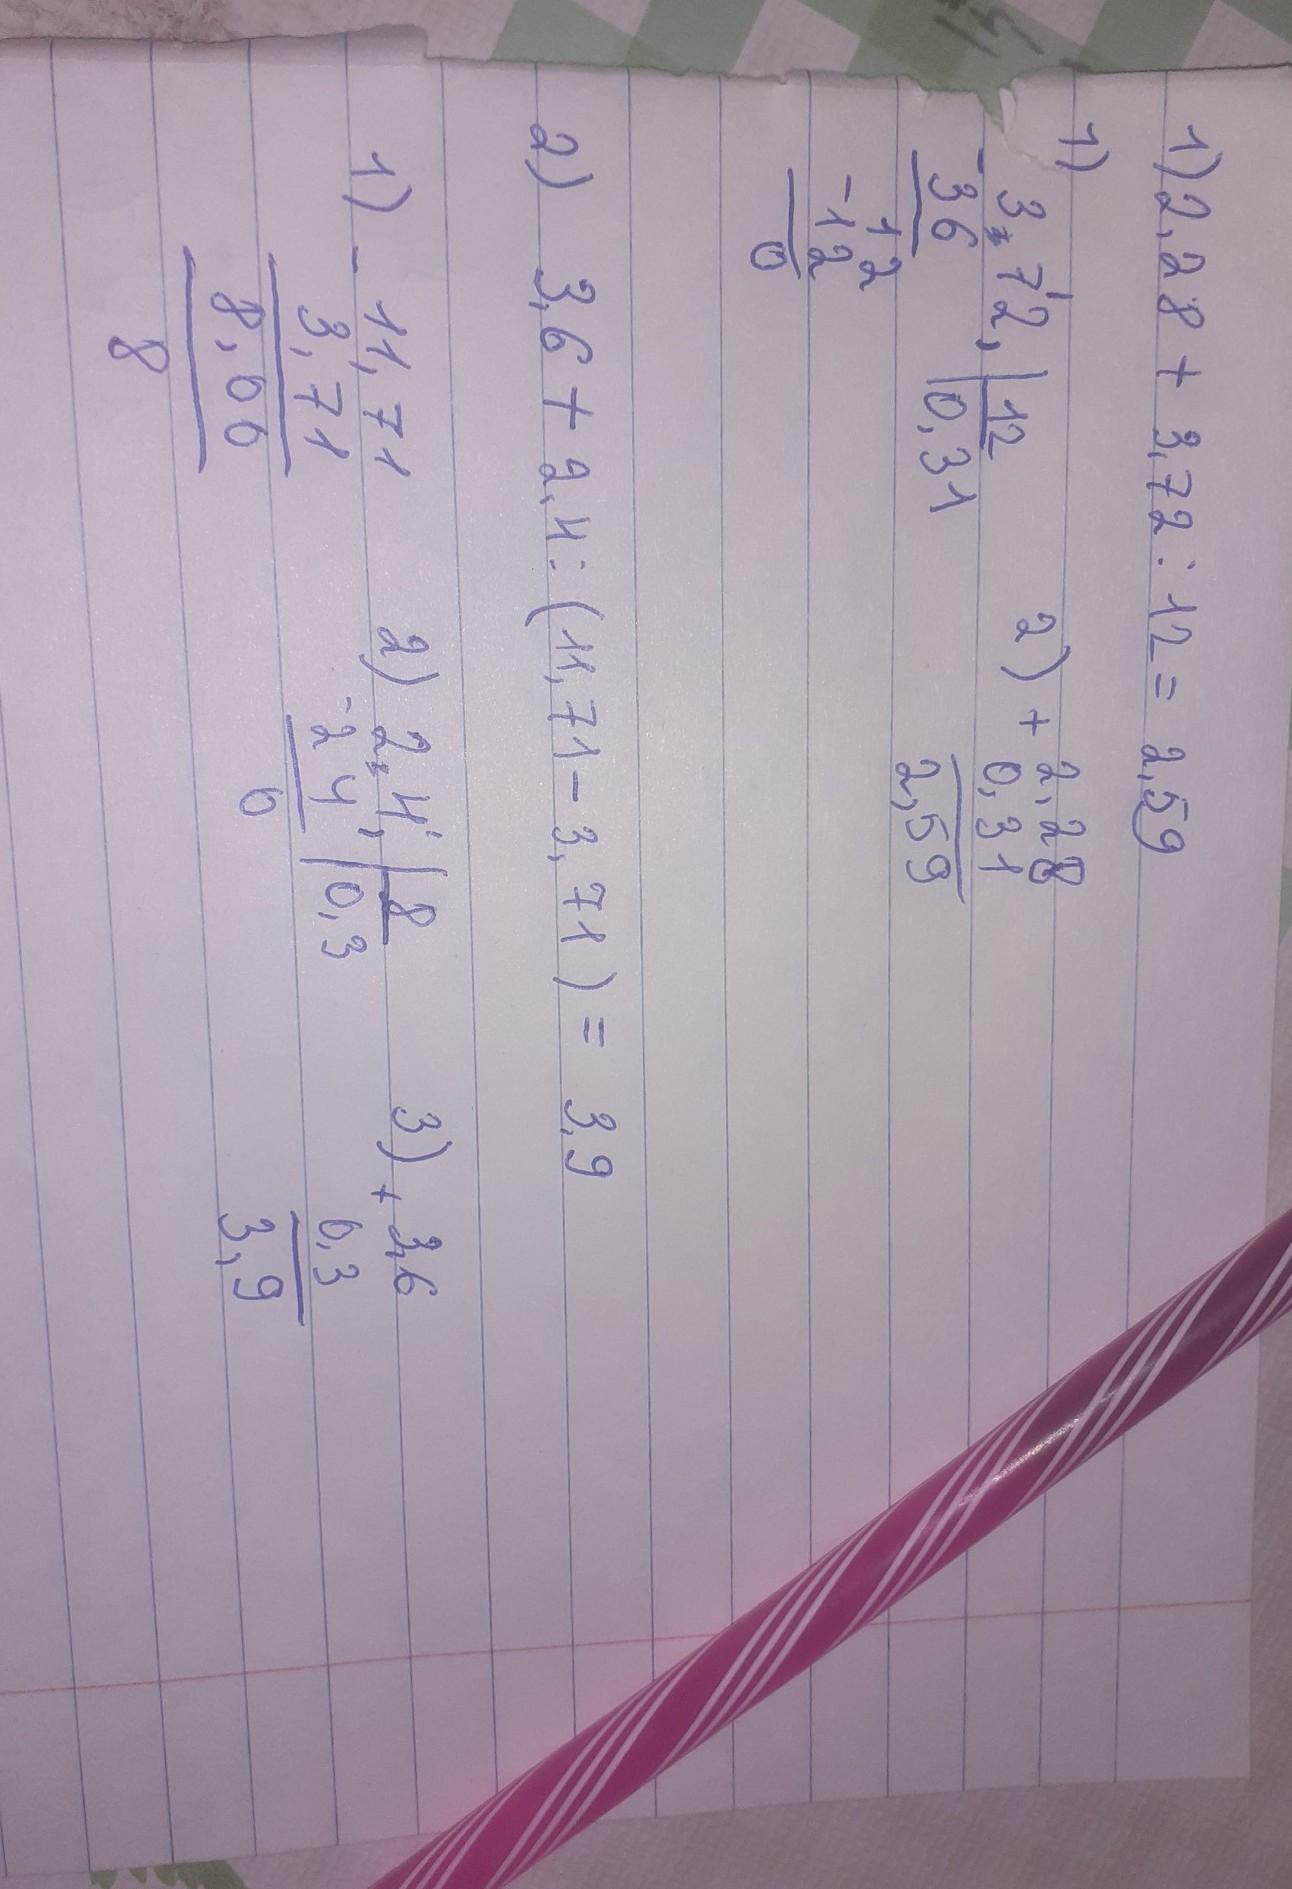 1) 2,28 + 3,72 : 12 = 2,59
1) 3,72, | 12
- 36 | 0,31
12
- 12
0
2) + 2,28
0,31
2,59
2) 3,6 + 2,4 : (11,71 - 3,71) = 3,9
1) - 11,71
3,71
8,00
8
2) 2,4, | 8
- 24 | 0,3
0
3) + 3,6
0,3
3,9